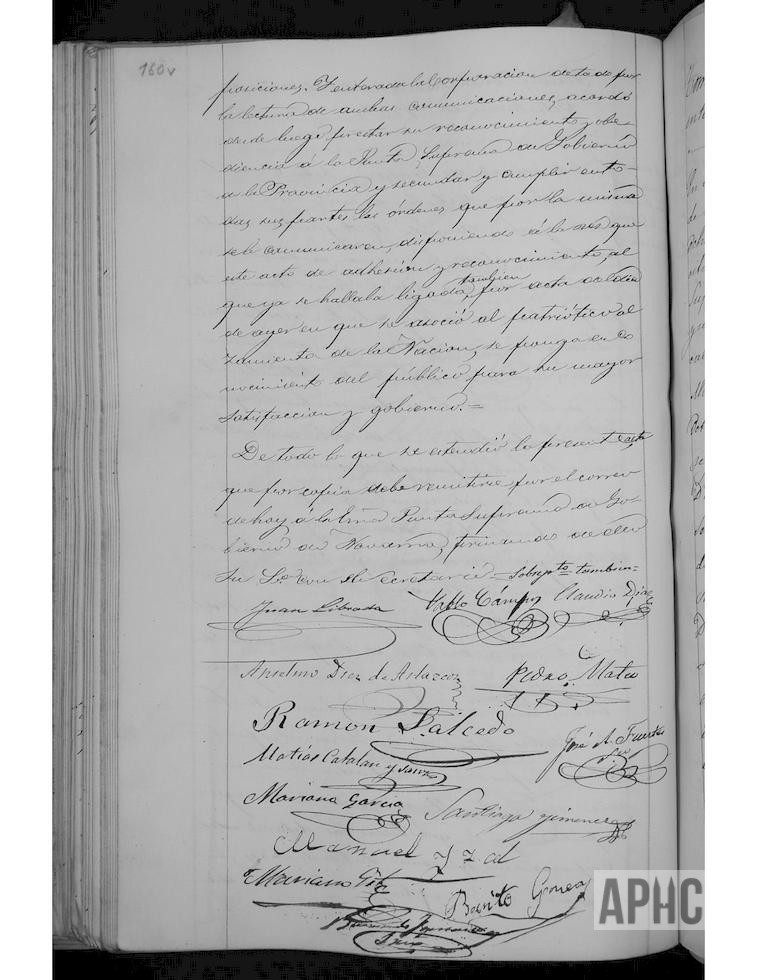 160v
posiciones. Y enterada la Corporacion de todo por
la lectura de ambas comunicaciones, acordó
desde luego prestar su reconocimiento y obe-
diencia á la Junta Suprema de Gobierno
de la Provincia y secundar y cumplir en to-
das sus partes las órdenes que por la misma
se le comunicaren, disponiendo á la vez que
este acto de adhesion y reconocimiento, al
que ya se hallaba ligada, tambien por acta del dia
de ayer en que se asoció al patriótico al
zamiento de la Nacion, se ponga en co
nocimiento del público para su mayor
satisfaccion y gobierno.=
De todo lo que se estendió la presente acta
que por copia debe remitirse por el correo
de hoy á la Exma Junta Suprema de Go-
bierno de Navarra, firmando de ello
Su Sa con el Secretario = Sobrepto = tambien =
Juan Librada
Pablo Cámara
Claudio Diaz
Anselmo Diaz de
Pedro Mata
Ramon Salcedo
José A. Fuertes
Matias Catalan y Sanz
Mariano Garcia
Santiago Gimenez
Manuel
Mariano Gil
Benito
Fernandez
APHC